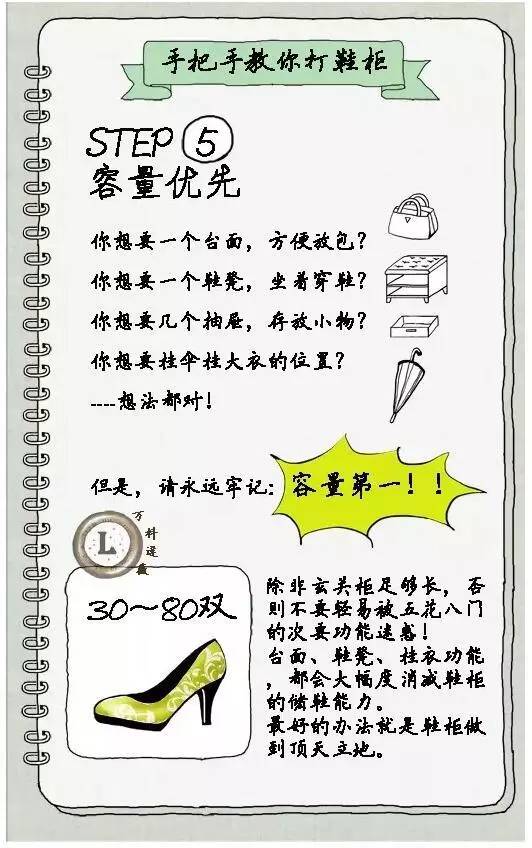 手把手教你打鞋柜
STEP ⑤
容量优先
你想要一个台面，方便放包？
你想要一个鞋凳，坐着穿鞋？
你想要几个抽屉，存放小物？
你想要挂伞挂大衣的位置？
----想法都对！
但是，请永远牢记：容量第一！！
L
万科逯薇
30～80双
除非玄关柜足够长，否
则不要轻易被五花八门
的次要功能迷惑！
台面、鞋凳、挂衣功能
，都会大幅度消减鞋柜
的储鞋能力。
最好的办法就是鞋柜做
到顶天立地。